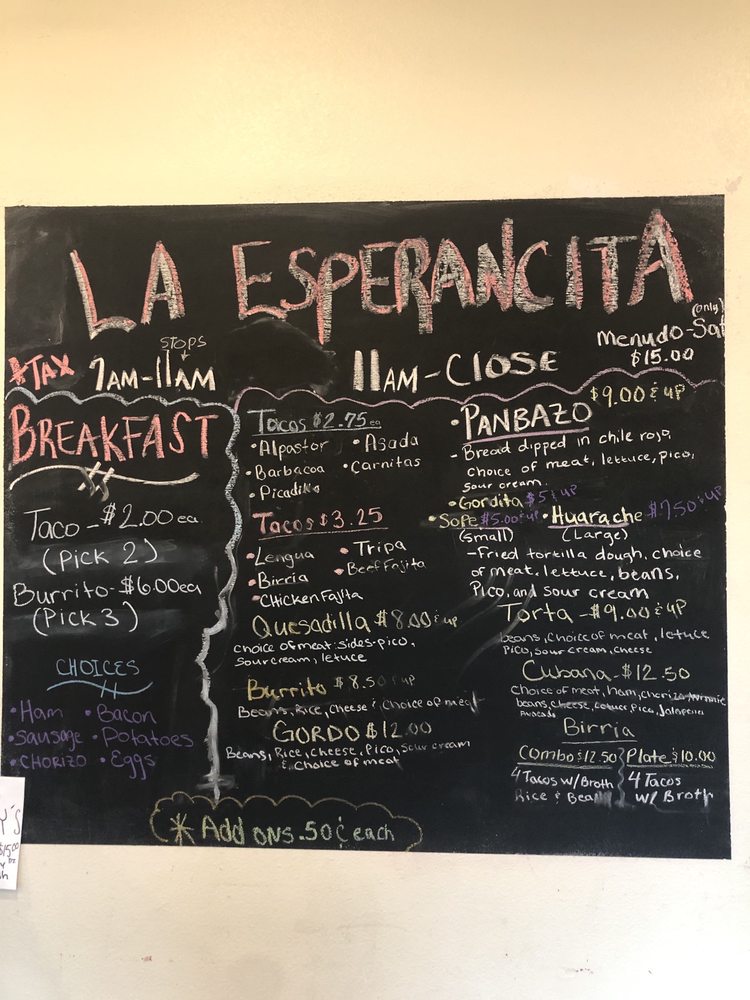 LA ESPERANCITA
(only)
Menudo-Sat
$15.00
STOPS
*TAX 7AM-11AM
11AM-CLOSE
BREAKFAST
Taco-$2.00 ea
(Pick 2)
Burrito-$6.00ea
(Pick 3)
CHOICES
•Ham •Bacon
•Sausage •Potatoes
•CHORIZO •Eggs
Tacos $2.75 ea
•Alpastor •Asada
•Barbacoa •Carnitas
•Picadillo
Tacos $3.25
•Lengua •Tripa
•Birria •Beef Fajita
•Chicken Fajita
Quesadilla $8.00 & up
choice of meat: sides-pico,
sour cream, lettuce
Burrito $8.50 & up
Beans, Rice, Cheese & Choice of meat
GORDO $12.00
Beans, Rice, Cheese, Pico, Sour cream
& Choice of meat
$9.00 & UP
•PANBAZO
- Bread dipped in chile rojo,
choice of meat, lettuce, pico,
sour cream.
•Gordita $5 & UP
•Sope $5.00 & UP •Huarache $7.50 & UP
(small) (Large)
-Fried tortilla dough, choice
of meat, lettuce, beans,
Pico, and sour cream
Torta-$9.00 & UP
beans, choice of meat, lettuce
Pico, sour cream, cheese
Cubana-$12.50
choice of meat, Ham, chorizo, winnie
beans, cheese, Lettuce, Pico, Jalapeños
Avocado
Birria
COMBO $12.50 Plate $10.00
4 Tacos w/Broth 4 Tacos
Rice & Beans w/ Broth
* Add ons .50¢ each
Y'S
$15.00